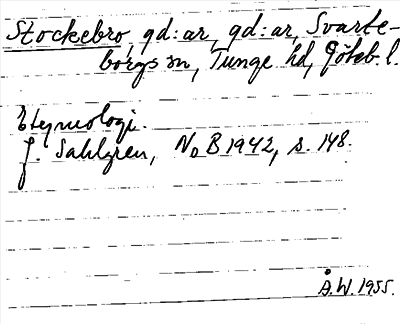 Stockebro, gd:ar, gd:ar, Svarte-
borgs sn, Tunge hd, Göteb. l.
Etymologi.
J. Sahlgren, NoB 1942, s. 148.
Å.W. 1955.